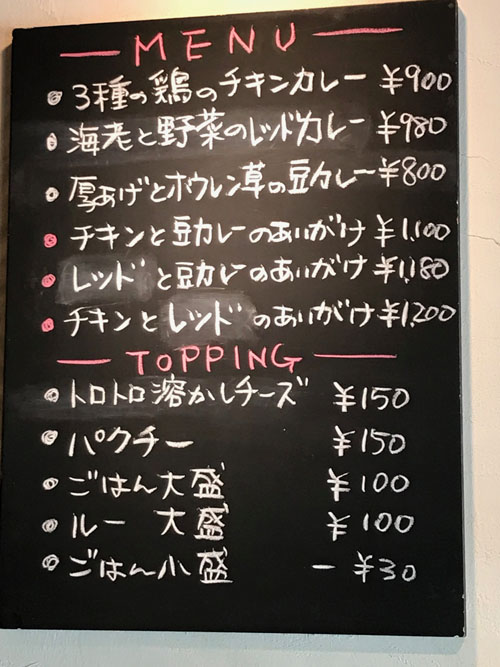 MENU
3種の鶏のチキンカレー ¥900
海老と野菜のレッドカレー ¥980
厚あげとホウレン草の豆カレー ¥800
チキンと豆カレーのあいがけ ¥1,100
レッドと豆カレーのあいがけ ¥1,180
チキンとレッドのあいがけ ¥1,200
TOPPING
トロトロ溶かしチーズ ¥150
パクチー ¥150
ごはん大盛 ¥100
ルー 大盛 ¥100
ごはん小盛 - ¥30